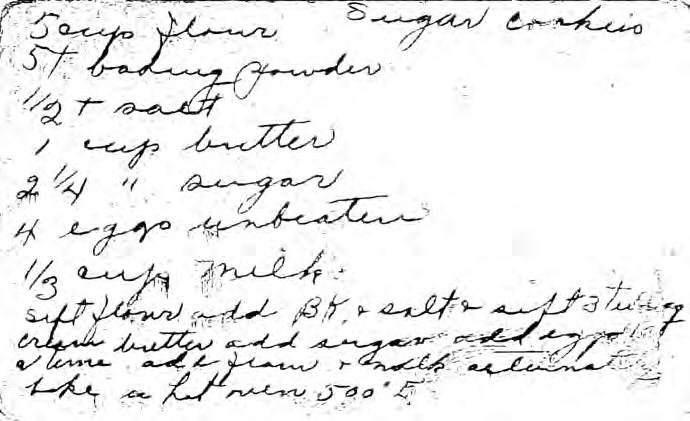 Sugar cookies
5 cup flour
5 t baking powder
1/2 t salt
1 cup butter
2 1/4 " sugar
4 eggs unbeaten
1/3 cup milk
sift flour add BK. & salt & sift 3 times
cream butter add sugar add eggs 1 at
a time add flour & milk alternat
bake a hot oven 500°F